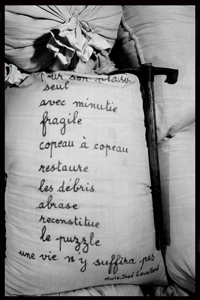 sur son
seul
avec minutie
fragile
copeau à copeau
restaure
les débris
abrase
reconstitue
le puzzle
une vie n'y suffira pas